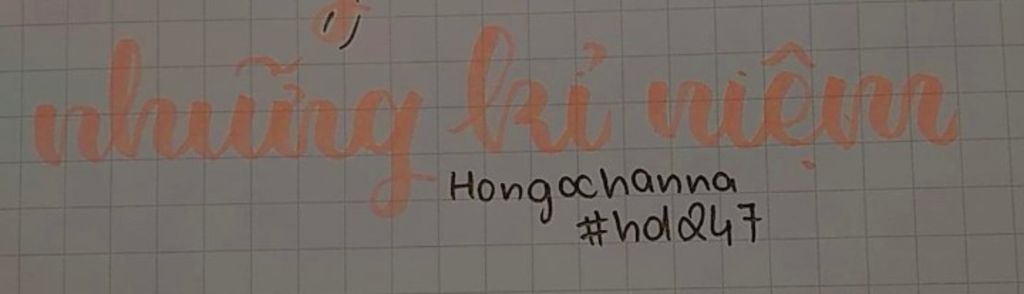 những kỉ niệm
Hongochanna
#hdl247